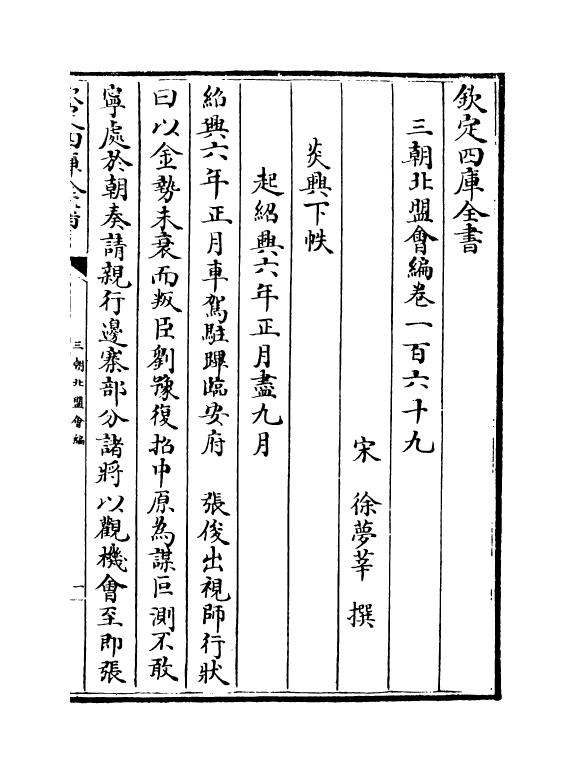 欽定四庫全書
三朝北盟會編卷一百六十九
宋 徐夢莘 撰
炎興下帙
起紹興六年正月盡九月
紹興六年正月車駕駐蹕臨安府 張俊出視師行狀
曰以金勢未衰而叛臣劉豫復㧞中原為謀叵測不敢
寧處於朝奏請親行邊寨部分諸將以觀機會至即張
三朝北盟會編
一